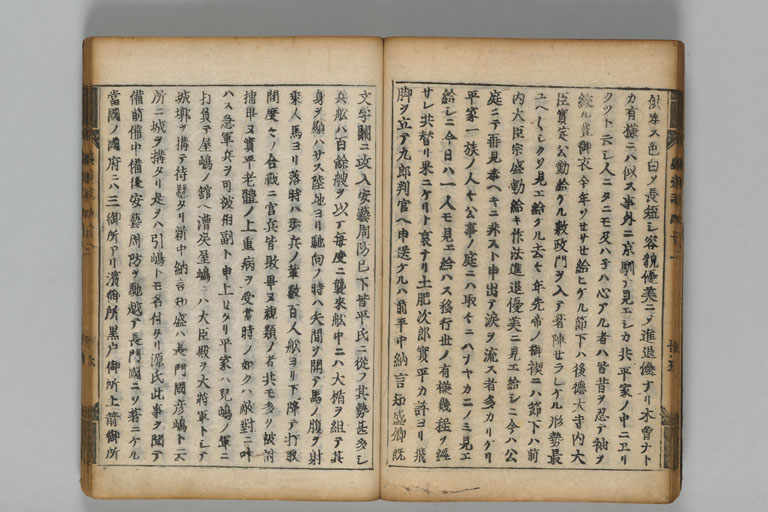 俄𛀁ス色白ク長短シ容貌優美ニメ進退優ナリ木曽ナト
カ有様ニハ似ス事外ニ京馴テ見エシカ共平家ノ中ニヱリ
クツト云シ人ニタニモ及ハネハ心アル者ハ皆昔ヲ忍テ袖ヲ
絞ル豊御衣今年ソセサセ給ヒケル節下ハ後徳大寺内大
臣實定公勤給ケル數政門ヲ入テ著陣セラレケル形勢最
エヘヘシクソ見エ給ケル去七年先帝ノ御禊ニハ節下ハ前
内大臣宗盛勤給キ作法進退優美ニ見エ給シニ今ハ公
庭ニテ再見奉ヘキニ非スト申出テ淚ヲ流ス者多カリケリ
平家一族ノ人々公事ノ庭ニハ取々ニハナヤカニノミ見エ
給シニ今日ハ一人モ見エ給ハス移行世ノ有樣幾程ヲ經
サレ共替リ果ニケリト哀ナリ土肥次郎實平カ許ヨリ飛
脚ヲ立テ九郎判官ヘ申送ケルハ前平中納言知盛卿既
文字關ニ攻入安藝周防已下皆平氏ニ從フ其勢甚多シ
兵船ハ百餘艘ヲ以テ每度ニ襲來船中ニハ大楯ヲ組テ其
身ヲ顯ハサス陸地ヨリ馳向ノ時ハ矢間ヲ開テ馬ノ腹ヲ射
乘人馬ヨリ落時ハ歩兵ノ輩數百人船ヨリ下降テ打取
間度々ノ合戰ニ官兵皆敗畢ヌ親類ノ者共モ多ク被討
捕畢ヌ實平老體ノ上重病ヲ受當時ノ如クハ敵對ニ叶
ハス急軍兵ヲ可被相副ト申上ヒタリ平家ハ兒嶋ノ軍ニ
打負テ屋嶋ノ館ヘ漕戻屋嶋ニハ大臣殿ヲ大將軍トシテ
城墎ヲ搆テ待懸タリ新中納言知盛ハ長門國彦嶋ト云
所ニ城ヲ搆タリ是ヲハ引嶋トモ名付タリ源氏此事ヲ聞テ
備前備中備後安藝周防ヲ馳越テ長門國ニソ著ニケル
當國ノ國府ニハ三御所アリ濱御所黒戸御所上箭御所